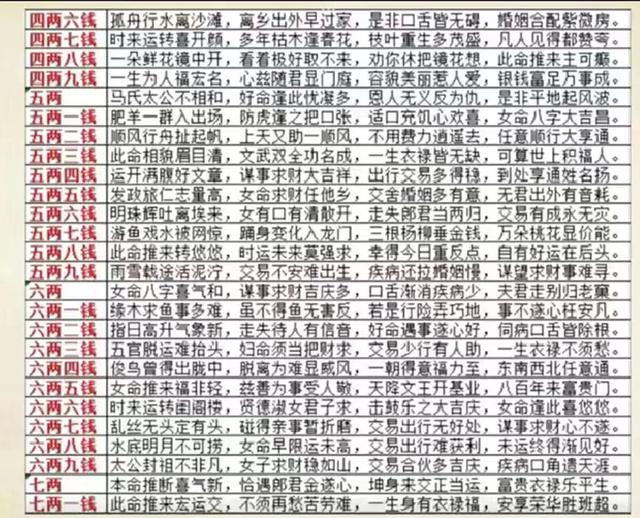 四两六钱 孤舟行水离沙滩，离乡出外早过家，是非口舌皆无碍，婚姻合配紫微房。
四两七钱 时来运转喜开颜，多年枯木逢春花，枝叶重生多茂盛，凡人见得都赞夸。
四两八钱 一朵鲜花镜中开，看看极好取不来，劝你休把镜花想，此命推来主可癫。
四两九钱 一生为人福宏名，心兹随君显门庭，容貌美丽惹人爱，银钱富足万事成。
五两 马氏太公不相和，好命逢此忧凝多，恩人无义反为仇，是非平地起风波。
五两一钱 肥羊一群入出场，防虎逢之把口张，适口充饥心欢喜，女命八字大吉昌。
五两二钱 顺风行舟扯起帆，上天又助一顺风，不用费力逍遥去，任意顺行大享通。
五两三钱 此命相貌眉目清，文武双全功名成，一生衣禄皆无缺，可算世上积福人。
五两四钱 运开满腹好文章，谋事求财大吉祥，出行交易多得稳，到处享通姓名扬。
五两五钱 发政旅仁志量高，女命求财任他乡，交舍婚姻多有意，无君出外有音耗。
五两六钱 明珠辉吐离埃来，女有口有清散开，走失郎君当两归，交易有成永无灾。
五两七钱 游鱼戏水被网惊，踊身变化入龙门，三根杨柳垂金钱，万朵桃花显价能。
五两八钱 此命推来转悠悠，时运未来莫强求，幸得今日重反点，自有好运在后头。
五两九钱 雨雪载途活泥泞，交易不安难出生，疾病还拉婚姻慢，谋望求财事难寻。
六两 女命八字喜气和，谋事求财吉庆多，口舌渐消疾病少，夫君走别归老窠。
六两一钱 缘木求鱼事多难，虽不得鱼无害反，若是行险弄巧地，事不遂心枉安凡。
六两二钱 指日高升气象新，走失待人有信音，好命遇事遂心好，伺病口舌皆除根。
六两三钱 五官脱运难抬头，妇命须当把财求，交易少行有人助，一生衣禄不须愁。
六两四钱 俊鸟曾得出胧中，脱离为难显威风，一朝得意福力至，东南西北任意通。
六两五钱 女命推来福非轻，兹善为事受人敬，天降文王开基业，八百年来富贵门。
六两六钱 时来运转闺阁楼，贤德淑女君子求，击鼓乐之大吉庆，女命逢此喜悠悠。
六两七钱 乱丝无头定有头，碰得亲事暂折磨，交易出行无好处，谋事求财心不遂。
六两八钱 水底明月不可捞，女命早限运未高，交易出行难获利，未运终得渐见好。
六两九钱 太公封祖不非凡，女子求财稳如山，交易合伙多吉庆，疾病口角遗天涯。
七两 本命推断喜气新，恰遇郎君金遂心，坤身来交正当运，富贵衣禄乐平生。
七两一钱 此命推来宏运交，不须再愁苦劳难，一生身有衣禄福，安享荣华胜班超。